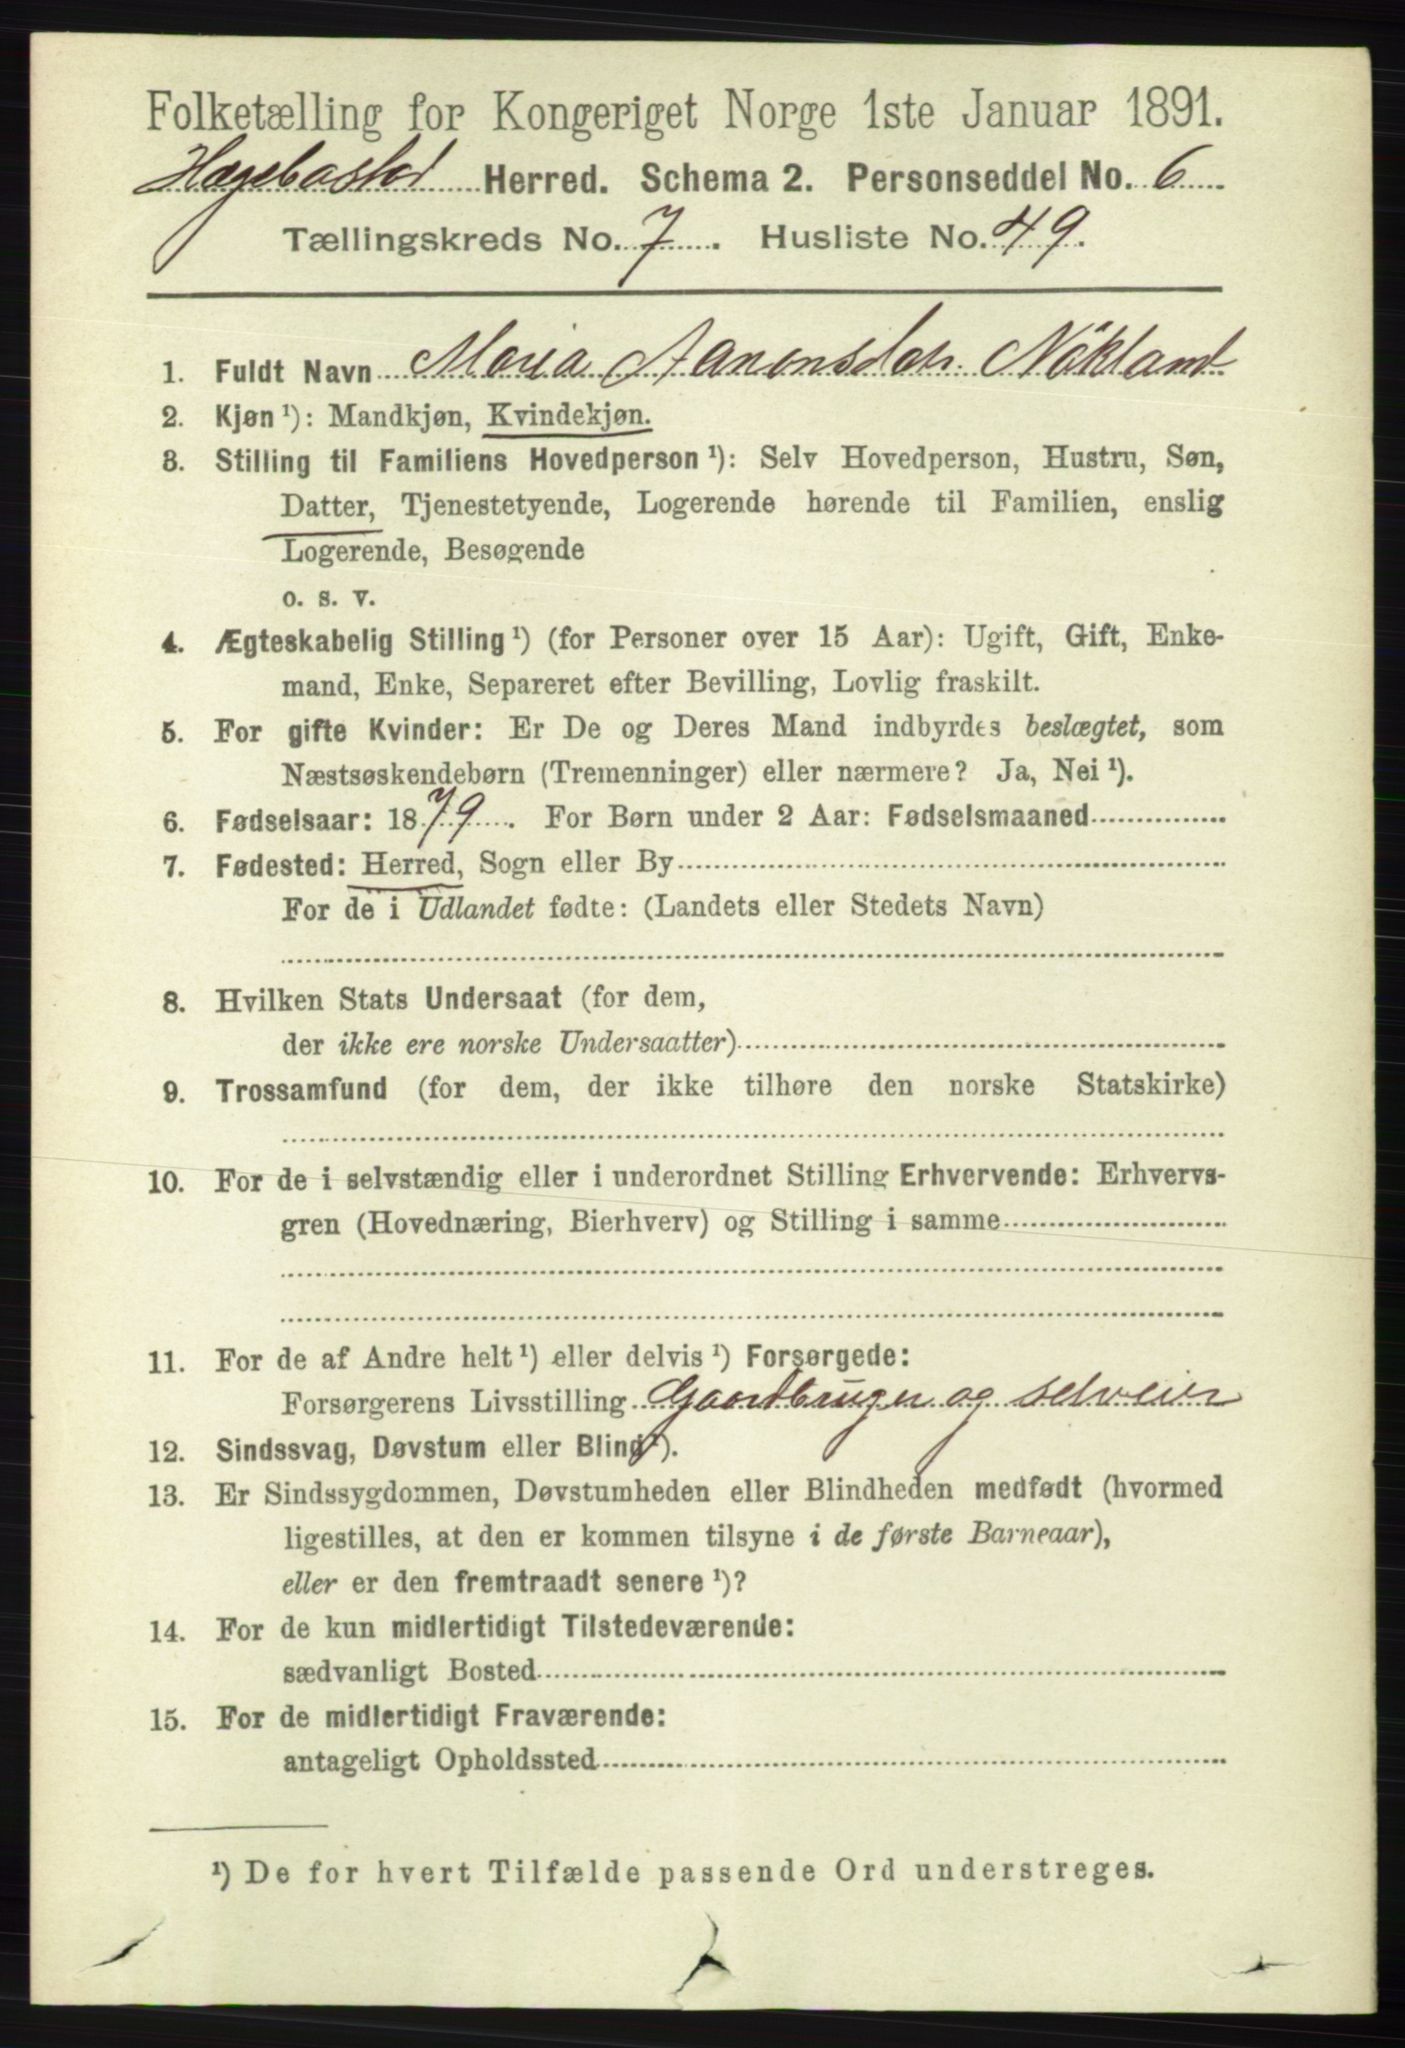 Folketælling for Kongeriget Norge 1ste Januar 1891.
Hægebostad Herred. Schema 2. Personseddel No. 6
Tællingskreds No. 7. Husliste No. 49.
1. Fuldt Navn Maria Aanonsdatr. Nökland
2. Kjøn ¹): Mandkjøn, Kvindekjøn.
3. Stilling til Familiens Hovedperson ¹): Selv Hovedperson, Hustru, Søn,
Datter, Tjenestetyende, Logerende hørende til Familien, enslig
Logerende, Besøgende
o. s. v.
4. Ægteskabelig Stilling ¹) (for Personer over 15 Aar): Ugift, Gift, Enke-
mand, Enke, Separeret efter Bevilling, Lovlig fraskilt.
5. For gifte Kvinder: Er De og Deres Mand indbyrdes beslægtet, som
Næstsøskendebørn (Tremenninger) eller nærmere? Ja, Nei ¹).
6. Fødselsaar: 1879. For Børn under 2 Aar: Fødselsmaaned
7. Fødested: Herred, Sogn eller By
For de i Udlandet fødte: (Landets eller Stedets Navn)
8. Hvilken Stats Undersaat (for dem,
der ikke ere norske Undersaatter)
9. Trossamfund (for dem, der ikke tilhøre den norske Statskirke)
10. For de i selvstændig eller i underordnet Stilling Erhvervende: Erhvervs-
gren (Hovednæring, Bierhverv) og Stilling i samme
11. For de af Andre helt ¹) eller delvis ¹) Forsørgede:
Forsørgerens Livsstilling Gaardbruger og selveier
12. Sindssvag, Døvstum eller Blind ¹).
13. Er Sindssygdommen, Døvstumheden eller Blindheden medfødt (hvormed
ligestilles, at den er kommen tilsyne i de første Barneaar),
eller er den fremtraadt senere ¹)?
14. For de kun midlertidigt Tilstedeværende:
sædvanligt Bosted
15. For de midlertidigt Fraværende:
antageligt Opholdssted
¹) De for hvert Tilfælde passende Ord understreges.